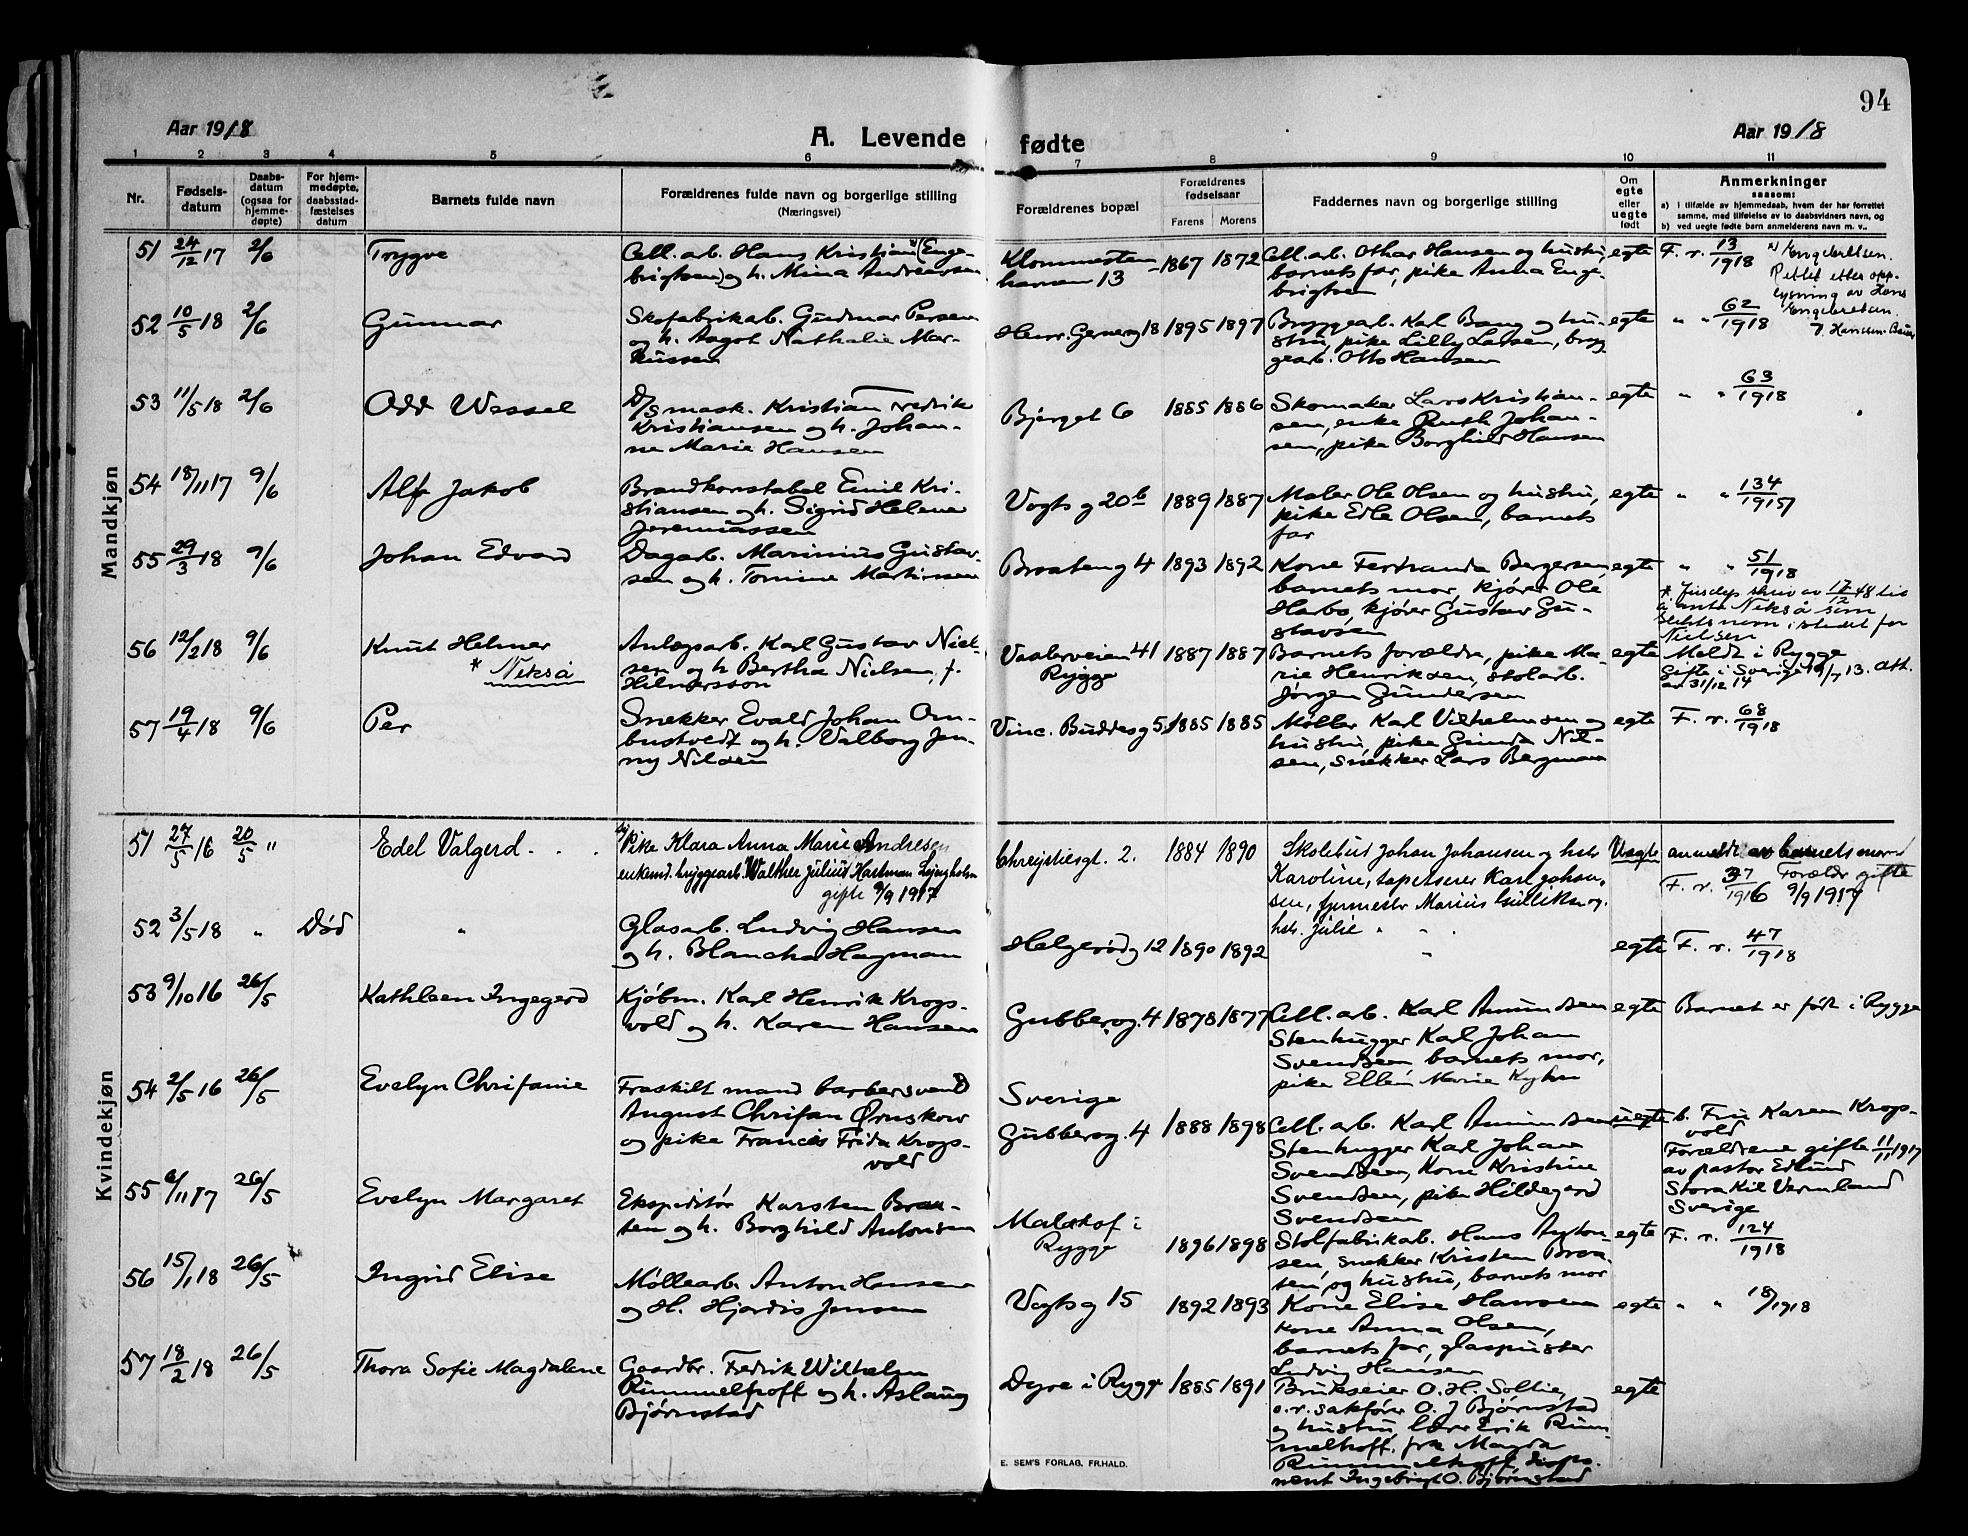 94
Aar 1918
A. Levende fødte
Aar 1918
1 2 3 4 5 6 7 8 9 10 11
Nr.
Fødsels-
datum
Daabs-
datum
(ogsaa for
hjemme-
døpte)
For hjem-
medøpte,
daabsstad-
fæstelses
datum
Barnets fulde navn
Forældrenes fulde navn og borgerlige stilling
(Næringsvei)
Forældrenes bopæl
Forældrenes
fødselsaar
Farens Morens
Faddernes navn og borgerlige stilling
Om
egte
eller
uegte
født
Anmerkninger
saasom:
a) i tilfælde av hjemmedaab, hvem der har forrettet
samme, med tilføielse av to daabsvidners navn, og
b) ved uegte fødte barn anmelderens navn m. v..
Mandkjøn
51 24/12 17 2/6 Trygve
Cell. arb. Hans Kristian (Enge-
brigtsen) og h. Mina Andreassen
Klommesten-
haven 13
1867 1872
Cell. arb. Othar Hansen og hustru,
barnets far, pike Anna Enge-
brigtsen
egte
F. r. 13/1918
Engebretsen.
Rettet etter opp-
lysning av Hans
Engebretsen.
52 10/5 18 2/6 Gunnar
Skofabrikarb. Gudmar Persen
og h. Aagot Nathalie Mar-
kussen
Henr. Gernersg 18 1895 1897
Bryggearb. Karl Bang og hu-
stru, pike Lilly Larsen, bryg-
gearb. Otto Hansen
egte
" " 62/1918
53 11/5 18 2/6 Odd Wessel
D/S mask. Kristian Fredrik
Kristiansen og h. Johan-
ne Marie Hansen
Bjerget 6 1885 1886
Skomaker Lars Kristian-
sen, enke Ruth Johan-
sen, pike Borghild Hansen
egte
" " 63/1918
54 18/11 17 9/6 Alf Jakob
Brandkonstabel Emil Kri-
stiansen og h. Sigrid Helene
Jeremiassen
Vogts g 20b 1889 1887
Maler Ole Olsen og hustru,
pike Edle Olsen, barnets
far
egte
" " 134/1917
55 29/3 18 9/6 Johan Edvard
Dagarb. Marinius Gustav-
sen og h. Tomine Martinsen
Braateng 4 1893 1892
Kone Ferdinanda Bergersen,
barnets mor, kjører Ole
Habo, kjører Gustav Gu-
stavsen
egte
" " 51/1918
56 12/2 18 9/6 Knut Helmer
* Neksø
Anlægsarb. Karl Gustav Niel-
sen og h Bertha Nielsen, f.
Hilmersson
Vaalerveien 41
Rygge
1887 1887
Barnets forældre, pike Ma-
rie Henriksen, stolarb.
Jørgen Gundersen
egte
slektsnavn istedet for
Nielsen
Meldt i Rygge
Gifte i Sverige 19/7 13. Att.
av 31/12 14
57 19/4 18 9/6 Per
Snekker Evald Johan Om-
bustvedt og h. Valborg Jen-
ny Nilsen
Vinc. Buddesg 5 1885 1885
Møller Karl Vilhelmsen og
hustru, pike Gunda Nil-
sen, snekker Lars Bergman
egte
F. r. 68/1918
Kvindekjøn
51 27/5 16 20/5 " Edel Valgerd . . .
Pike Klara Anna Marie Andresen
enkemd. bryggearb. Walther Julius Hartman Ljungholm
gifte 9/9 1917
Chrystiesgt. 2. 1884 1890
Skolebud Johan Johansen og hstr
Karoline, tapetserer Karl Johan-
sen, formester Marius Gulliksen og
hstr. Julie " "
Uegte
anmeldt av barnets mor
F. r. 37/1916
Forældr gifte
9/9 1917
52 3/5 18 " Død "
Glasarb. Ludvig Hansen
og h. Blancha Hagman
Helgerødg 12 1890 1892
"
egte F. r. 47/1918
53 9/10 16 26/5 Kathleen Ingegerd
Kjøbm. Karl Henrik Krogs-
vold og h. Karen Hansen
Gubberog. 4 1878 1877
Cell. arb. Karl Amundsen
Stenhugger Karl Johan
Svendsen, barnets mor,
pike Ellen Marie Kyhn
egte
Barnet er født i Rygge
54 2/5 16 26/5 Evelyn Chrifanie
Fraskilt mand barbersvend
August Chrifan Ørnskow
og pike Francis Frida Krogs-
vold
Sverige
Gubberog. 4 1888 1898
Cell. arb. Karl Amundsen
Stenhugger Karl Johan
Svendsen, Kone Kristine
Svendsen, pike Hildegerd
Svendsen
uegte
b. Fru Karen Krogs-
vold
Forældrene gifte 11/11 1917
av pastor Edlund
Stora Kil Vermland
Sverige
55 6/11 17 26/5 Evelyn Margaret
Ekspeditør Karsten Braa-
ten og h. Borghild Antonsen
Malakof i
Rygge
1896 1898
Stolfabrikarb. Hans Anton-
sen, snekker Kristen Braa-
ten, og hustru, barnets mor
egte
F. r. 124/1918
56 15/1 18 26/5 Ingrid Elise
Møllearb. Anton Hansen
og H. Hjørdis Jensen
Vogts g 15 1892 1893
Kone Elise Hansen
Kone Anna Olsen,
barnets far, glaspuster
Ludvig Hansen
egte " " 18/1918
57 18/2 18 26/5 Thora Sofie Magdalene
Gaardbr. Fedrik Wilhelm
Rummelhoff og h. Aslaug
Bjørnstad
Dyre i Rygge 1885 1891
Brukseier O. H. Soltie,
o.r. sakfører O. J Bjørnstad
og hustru, lærer Erik Rum-
melhoff, frk Magda
Rummelhoff, dispo-
nent Ingebrigt O. Bjørnstad
egte
E. SEM'S FORLAG, FR.HALD.